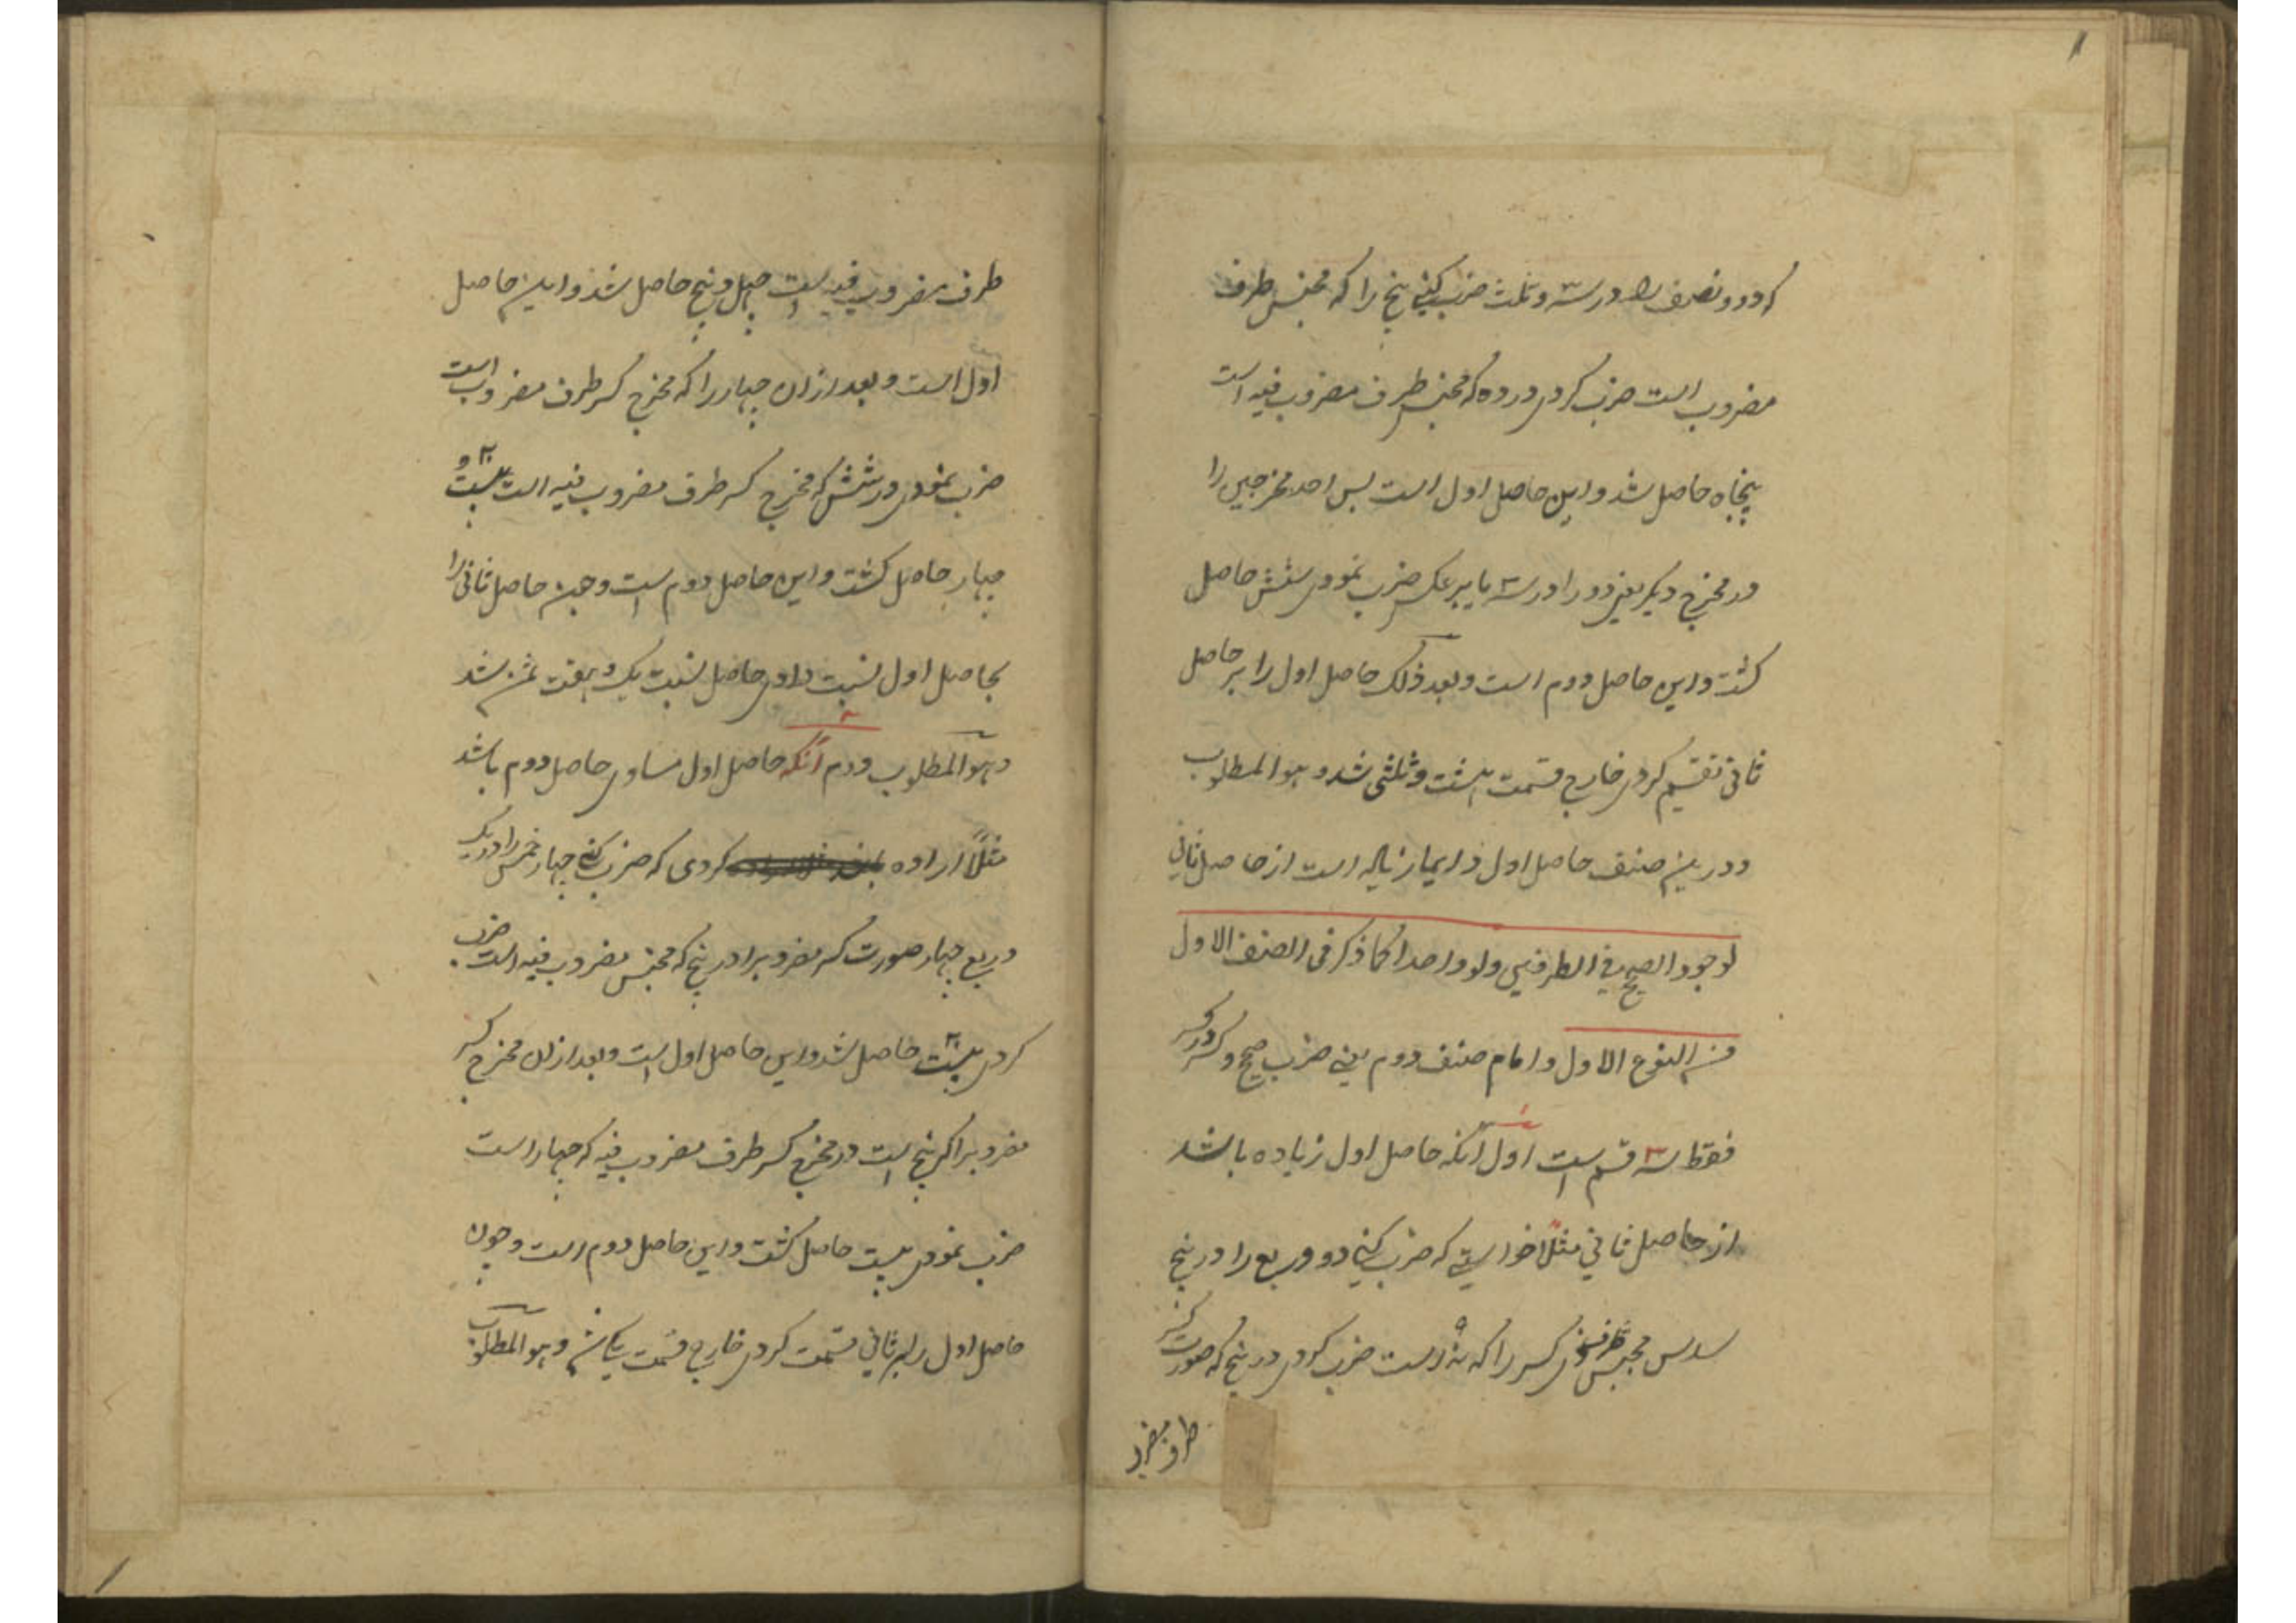 که دو و نصف را در سه و ثلث ضرب کنی پنج را که مجنس طرف
مضروب است ضرب کردی در ده که مجنس طرف مضروب فیه است
پنجاه حاصل شد و این حاصل اول است پس احد مخرجین را
در مخرج دیگر یعنی دو را در سه یا برعکس ضرب نمودی شش حاصل
گشت و این حاصل دوم است و بعد ذلک حاصل اول را بر حاصل
ثانی تقسیم کردی خارج قسمت هشت و ثلثی شد و هو المطلوب
و درین صنف حاصل اول دایما زیاده است از حاصل ثانی
لوجود الصحیح فی الطرفین ولو واحدا کما ذکر فی الصنف الاول
من النوع الاول و اما صنف دوم یعنی ضرب صحیح و کسر در کسر
فقط سه قسم است اول آنکه حاصل اول زیاده باشد
از حاصل ثانی مثلاً خواستی که ضرب کنی دو و ربع را در پنج
سدس مجنس طرف کسر را که نه است ضرب کردی در پنج که صورت کسر
طرف مضرو
طرف مضروب فیه است چهل و پنج حاصل شد و این حاصل
اول است و بعد ازان چهار را که مخرج کسر طرف مضروب است
ضرب نمودی در شش که مخرج کسر طرف مضروب فیه است بیست و
چهار حاصل گشت و این حاصل دوم است و چون حاصل ثانی را
بحاصل اول نسبت دادی حاصل نسبت یک و هفت ثمن شد
و هو المطلوب دوم آنکه حاصل اول مساوی حاصل دوم باشد
مثلاً اراده کردی که ضرب کنی چهار خمس را در یک
و ربع چهار صورت کسر مضروب را در پنج که مجنس مضروب فیه است ضرب
کردی بیست حاصل شد و این حاصل اول است و بعد ازان مخرج کسر
مضروب را که پنج است در مخرج کسر طرف مضروب فیه که چهار است
ضرب نمودی بیست حاصل گشت و این حاصل دوم است و چون
حاصل اول را بر ثانی قسمت کردی خارج قسمت یکان و هو المطلوب